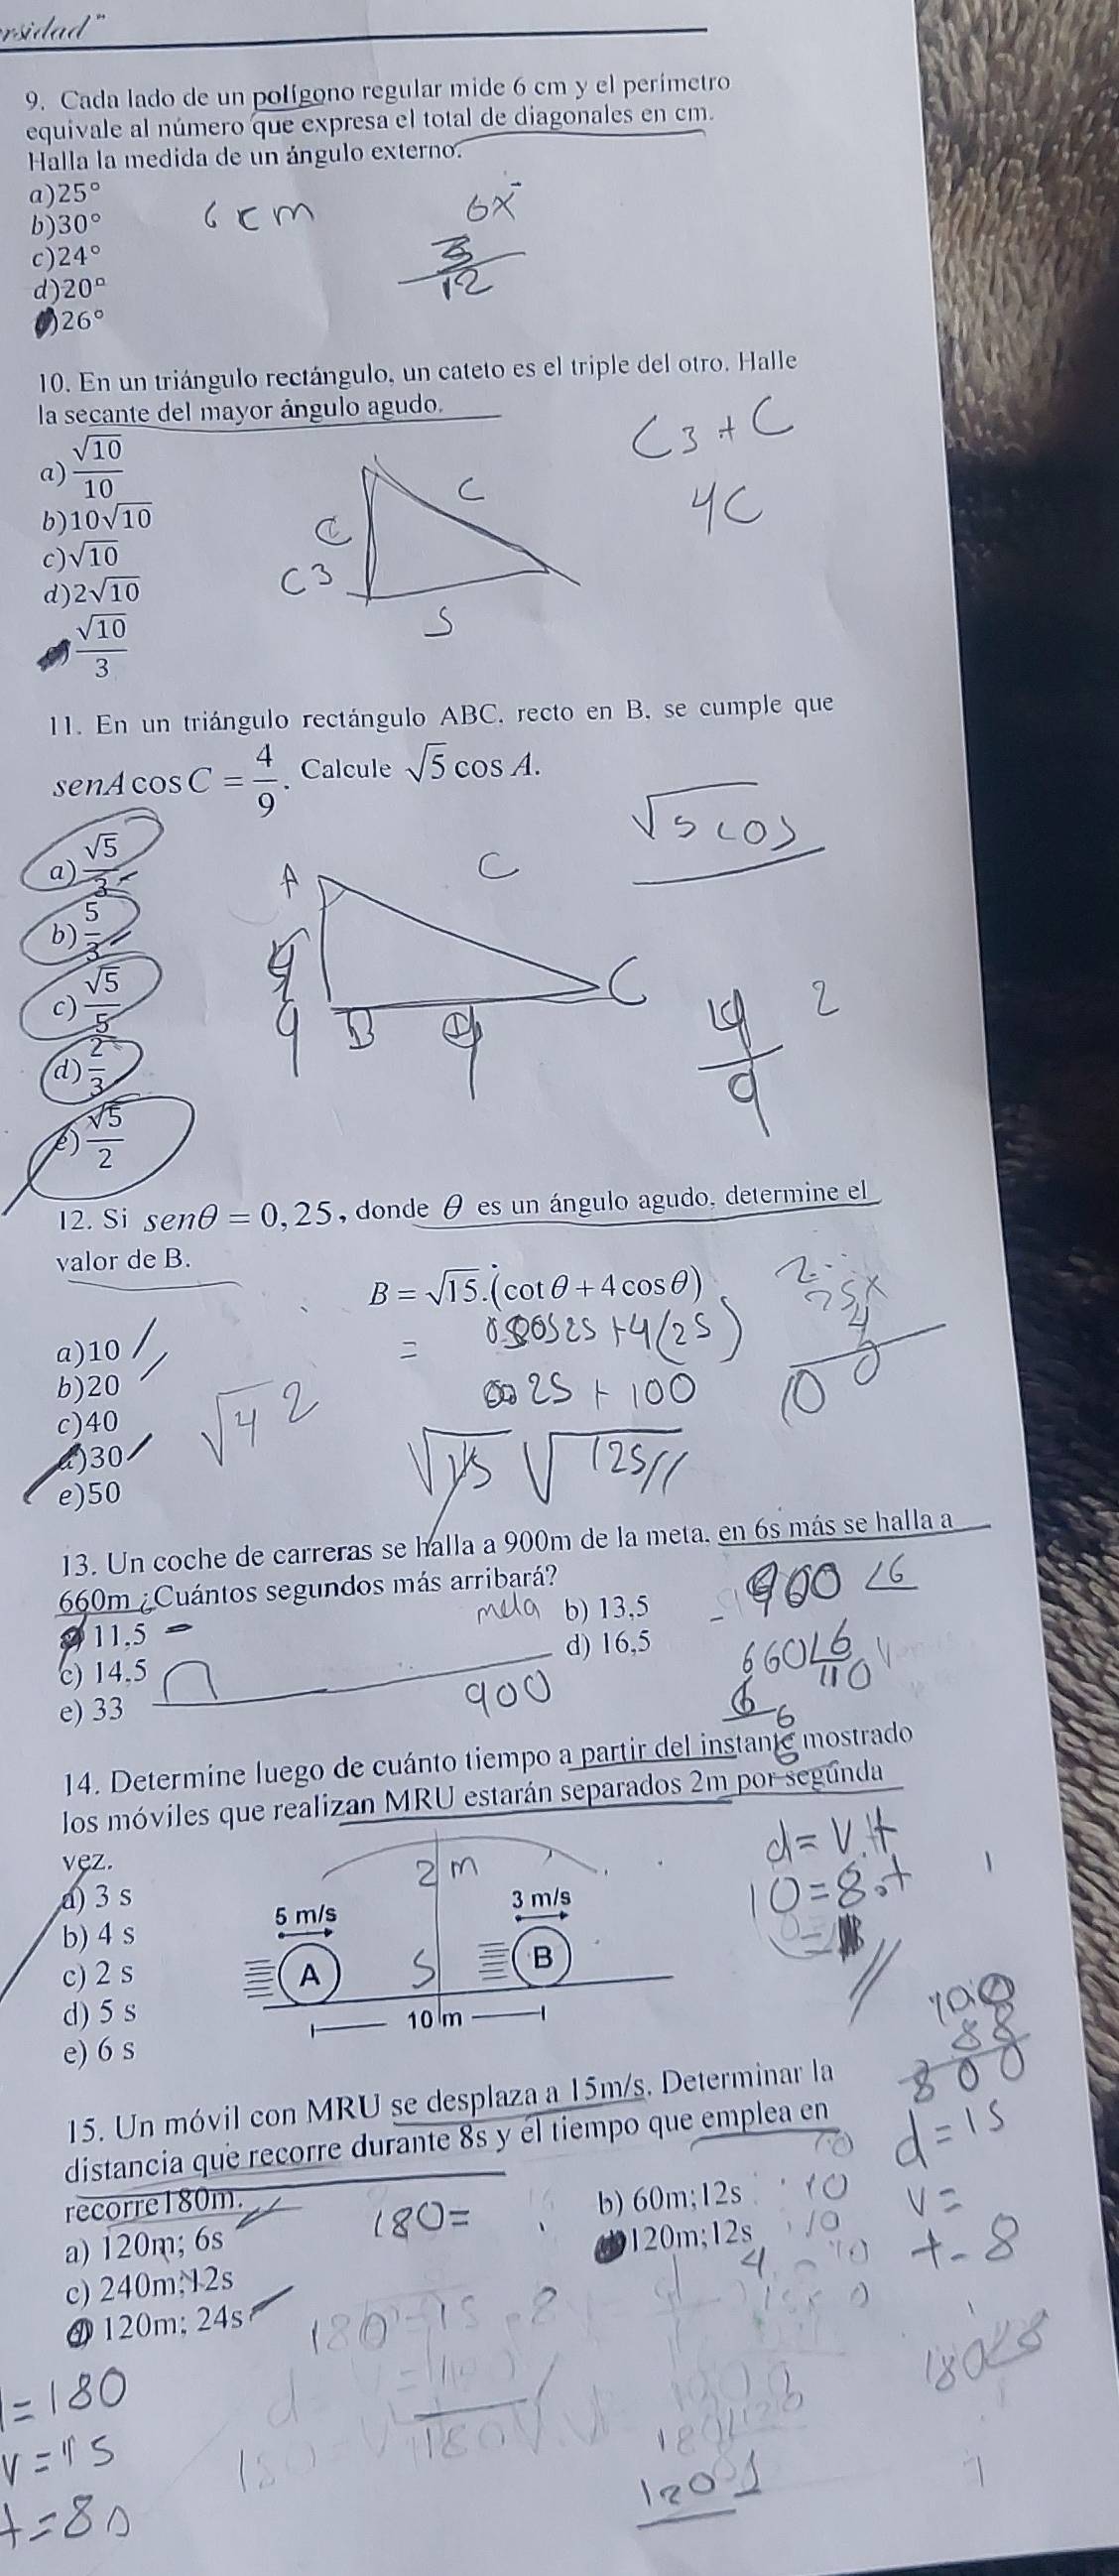 rsidad"
9. Cada lado de un polígono regular mide 6 cm y el perímetro
equivale al número que expresa el total de diagonales en cm.
Halla la medida de un ángulo externo.
a)25°
b)30°
c)24°
d)20°
)26°
6 cm
6x
12
10. En un triángulo rectángulo, un cateto es el triple del otro. Halle
la secante del mayor ángulo agudo.
a) √10/10
b)10√10
c)√10
d)2√10
) √10/3
C3+C
4C
C
C
C3
S
11. En un triángulo rectángulo ABC, recto en B, se cumple que
senA cos C = 4/9. Calcule √5 cos A.
a) √5/3
b) 5/3
c) √5/5
d) 2/3
e) √5/2
√5 cos
A
C
C
B
4/9
2
12. Si senθ = 0,25, donde θ es un ángulo agudo, determine el
valor de B.
B = √15.(cot θ + 4 cos θ)
a)10
b)20
c)40
d)30
e)50
√4 2
= +4(25)
25 + 100
√15 √125
13. Un coche de carreras se halla a 900m de la meta, en 6s más se halla a
660m ¿Cuántos segundos más arribará?
11,5
b) 13,5
c) 14,5
d) 16,5
e) 33
900
900 6
660 6
110
14. Determine luego de cuánto tiempo a partir del instante mostrado
los móviles que realizan MRU estarán separados 2m por segunda
vez.
a) 3 s
b) 4 s
c) 2 s
d) 5 s
e) 6 s
2 m
5 m/s
3 m/s
A
S
B
10 m
d = V.t
10=8.t
15. Un móvil con MRU se desplaza a 15m/s. Determinar la
distancia que recorre durante 8s y el tiempo que emplea en
recorre180m.
a) 120m; 6s
b) 60m;12s
c) 240m;12s
120m;12s
120m; 24s
180=
800
d=15
v=
t-8
=180
v=15
t=8s
120